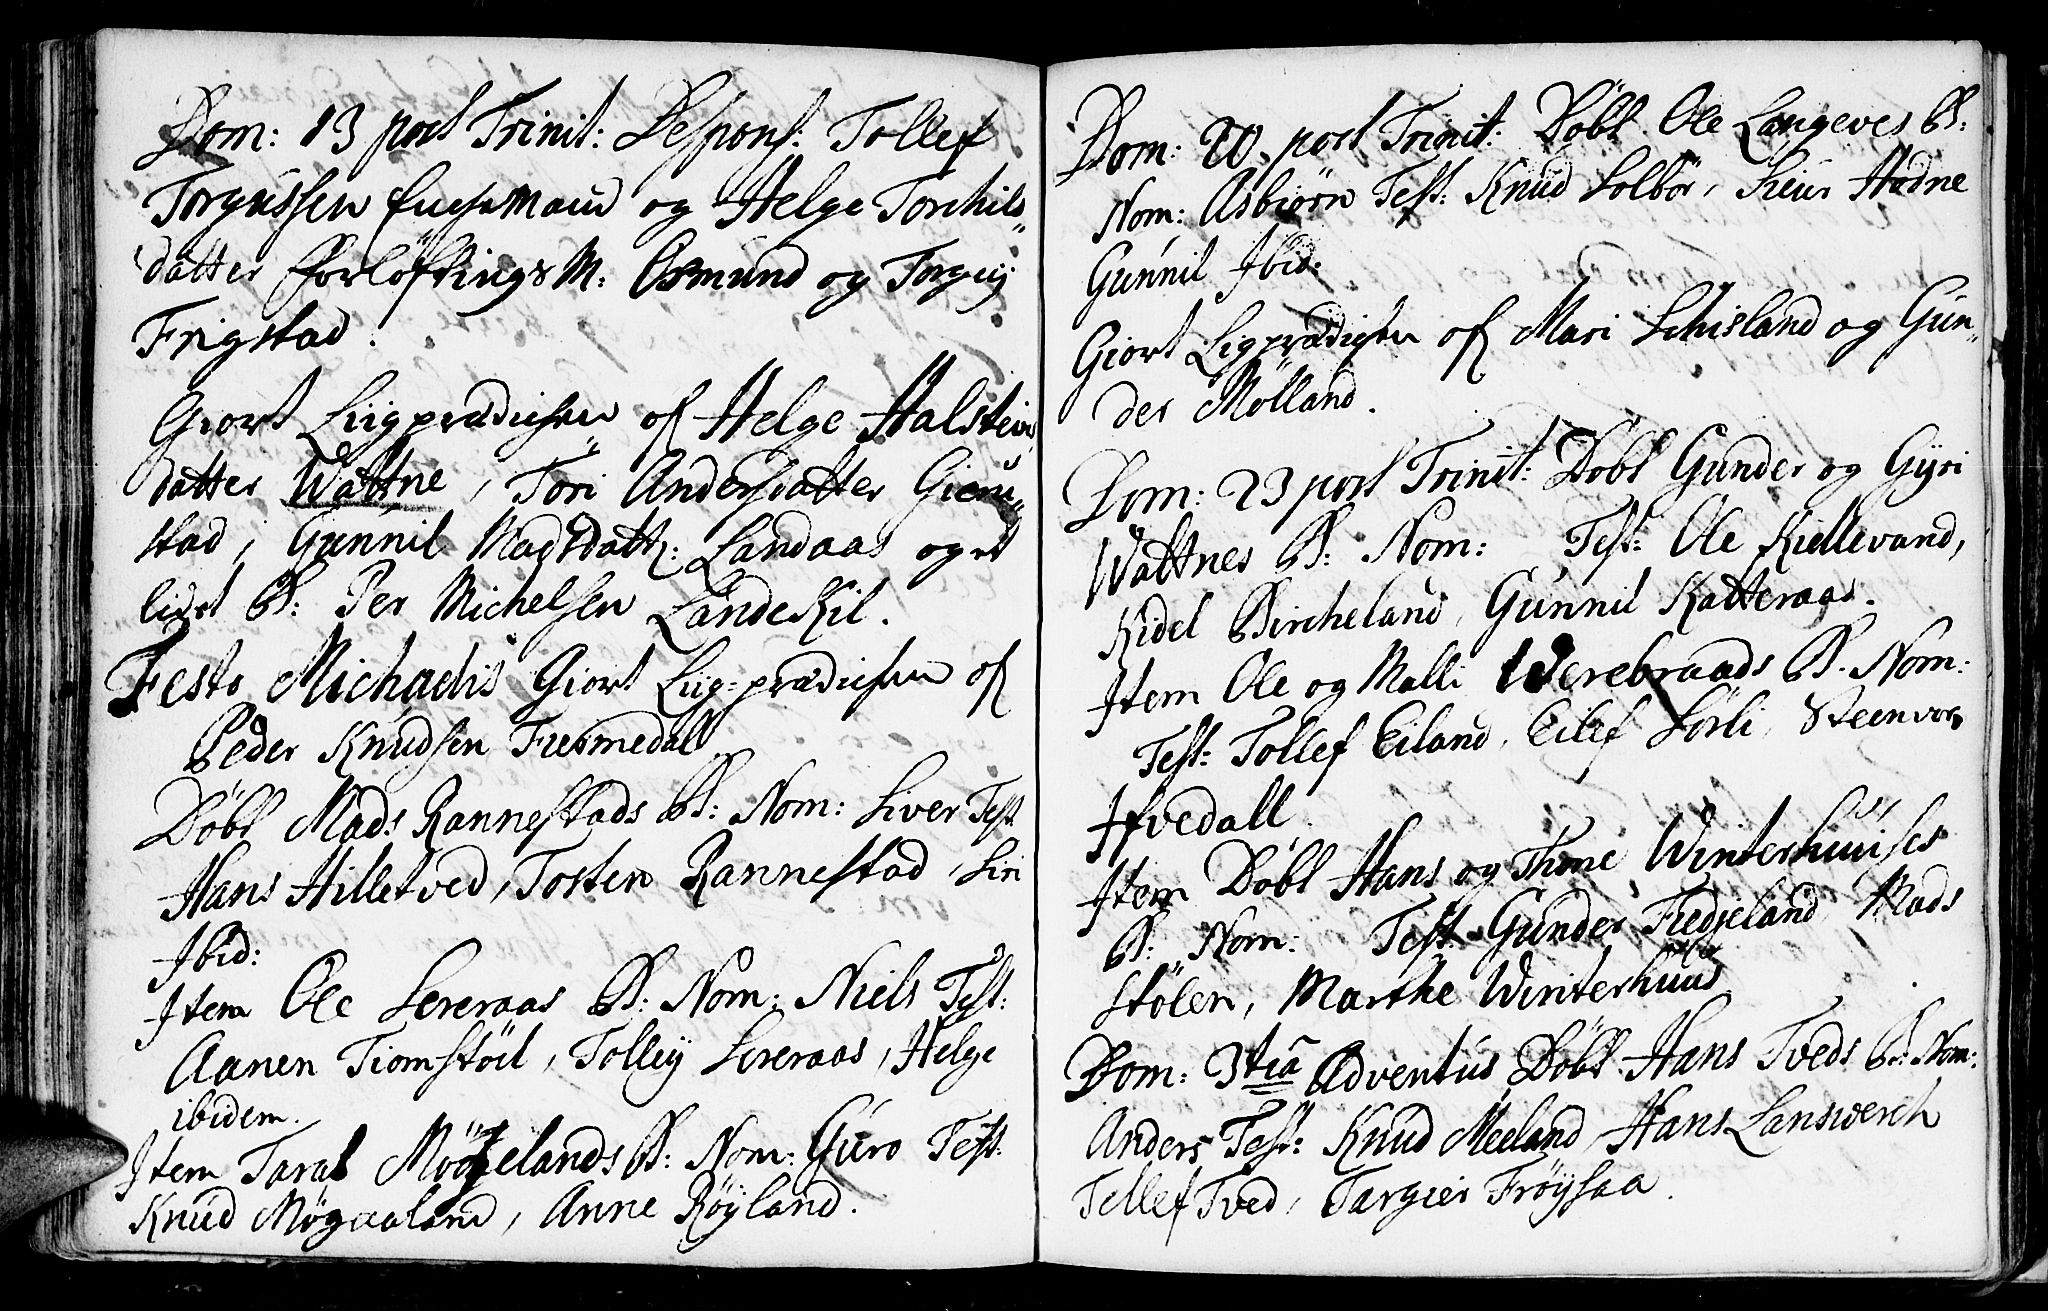 Dom: 13 post Trinit: Despons: Tollef
Torgussen Enchemand og Helge Torchils
datter Forløftings M: Osmund og Torgiy
Frigstad.
Giort Liigprædichen of Helge Halsteins
datter Wattne, Tori Andersdatter Gieru-
stad, Gunnil Madsdatt: Landaas og et
lidet B: Per Michelsen Landekil.
Festo Michaelis Giort Liig-prædichen of
Peder Knudsen Fiermedal
Døbt Mads Rannestads B: Nom: Siver Test
Hans Hilletved, Tosten Rannestad, Siri
Ibid:
Item Ole Lereraas B: Nom: Niels Test:
Aanen Tiomstöil, Tolleij Lereraas, Helge
ibidem.
Item Taral Mögelands B: Nom: Guro Test:
Knud Møgaaland, Anne Røyland.
Dom: 20 post Trinit: Döbt Ole Langeves B:
Nom: Asbiörn Test: Knud Solbör, Siur Hodne
Gunnil Ibid:
Giort Ligprædichen of Mari Schisland og Gun-
der Mölland.
Dom: 23 post Trinit: Döbt Gunder og Gyri
Wattnes B: Nom: Test: Ole Kiellevand,
Kidel Bircheland, Gunnil Katteraas.
Item Ole og Malli Werebraads B. Nom:
Test: Tollef Eiland, Eilef Sörli, Steenvor
Ifvedall
Item Döbt Hans og Thone Winterhuuses
B: Nom: Test: Gunder Fredjeland, Mads
Stölen, Marthe Winterhuus
Dom: 3tia Adventus Döbt Hans Tveds B: Nom:
Anders Test: Knud Meeland, Hans Lanswerch
Tellef Tved, Targier Fröysaa.